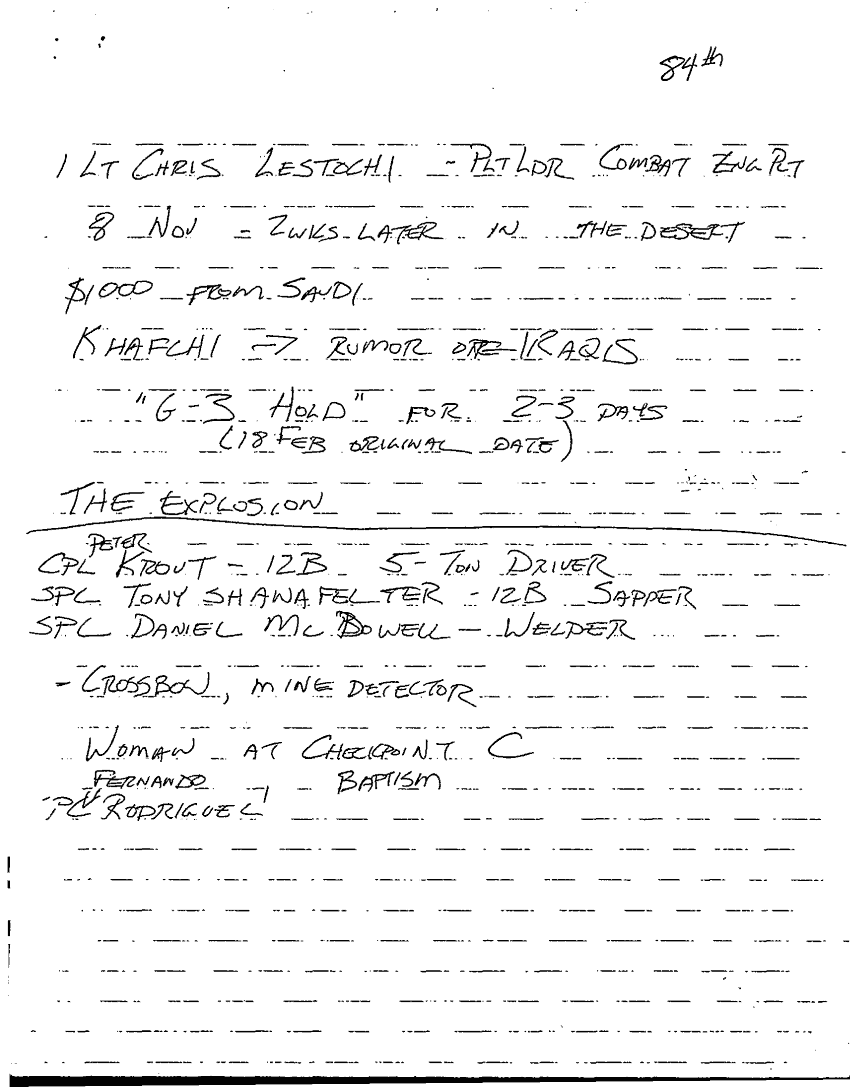 84th
1 LT CHRIS LESTOCHI - PLT LDR COMBAT ENG PLT
8 NOV = 2WKS LATER IN THE DESERT
$1000 FROM SAUDI
KHAFCHI => RUMOR IRAQIS
"G-3 HOLD" FOR 2-3 DAYS
(18 FEB ORIGINAL DATE)
THE EXPLOSION
PETER
CPL KROUT - 12B 5-TON DRIVER
SPC TONY SHAWAFELTER - 12B SAPPER
SPC DANIEL McBOWELL - WELDER
- CROSSBOW, MINE DETECTOR
WOMAN AT CHECKPOINT C
FERNANDO BAPTISM